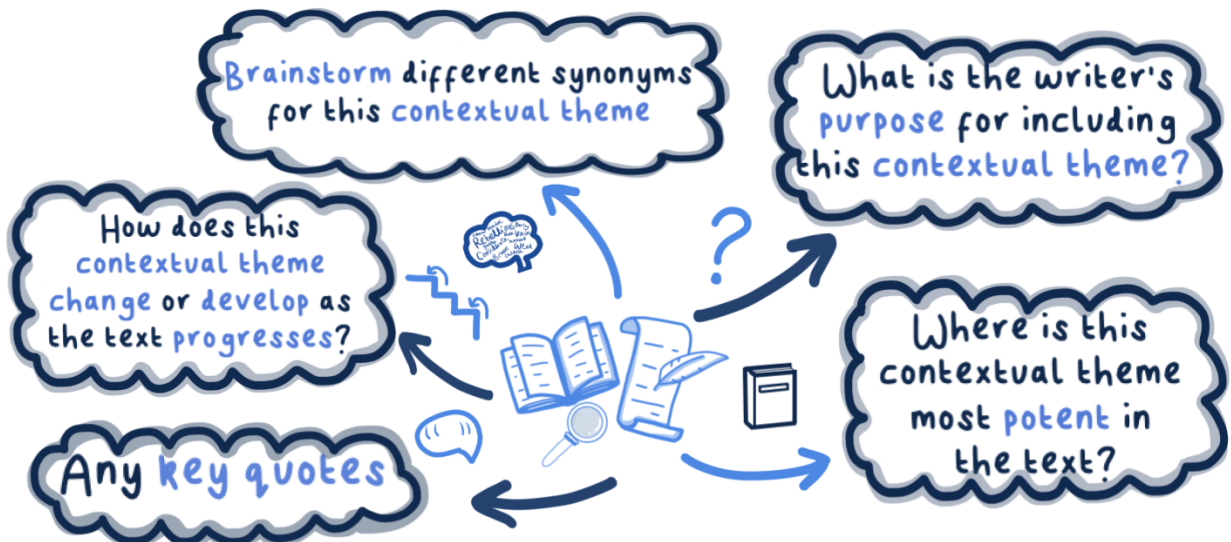 Brainstorm different synonyms
for this contextual theme
What is the writer's
purpose for including
this contextual theme?
How does this
contextual theme
change or develop as
the text progresses?
Where is this
contextual theme
most potent in
the text?
Any key quotes
Rebellious